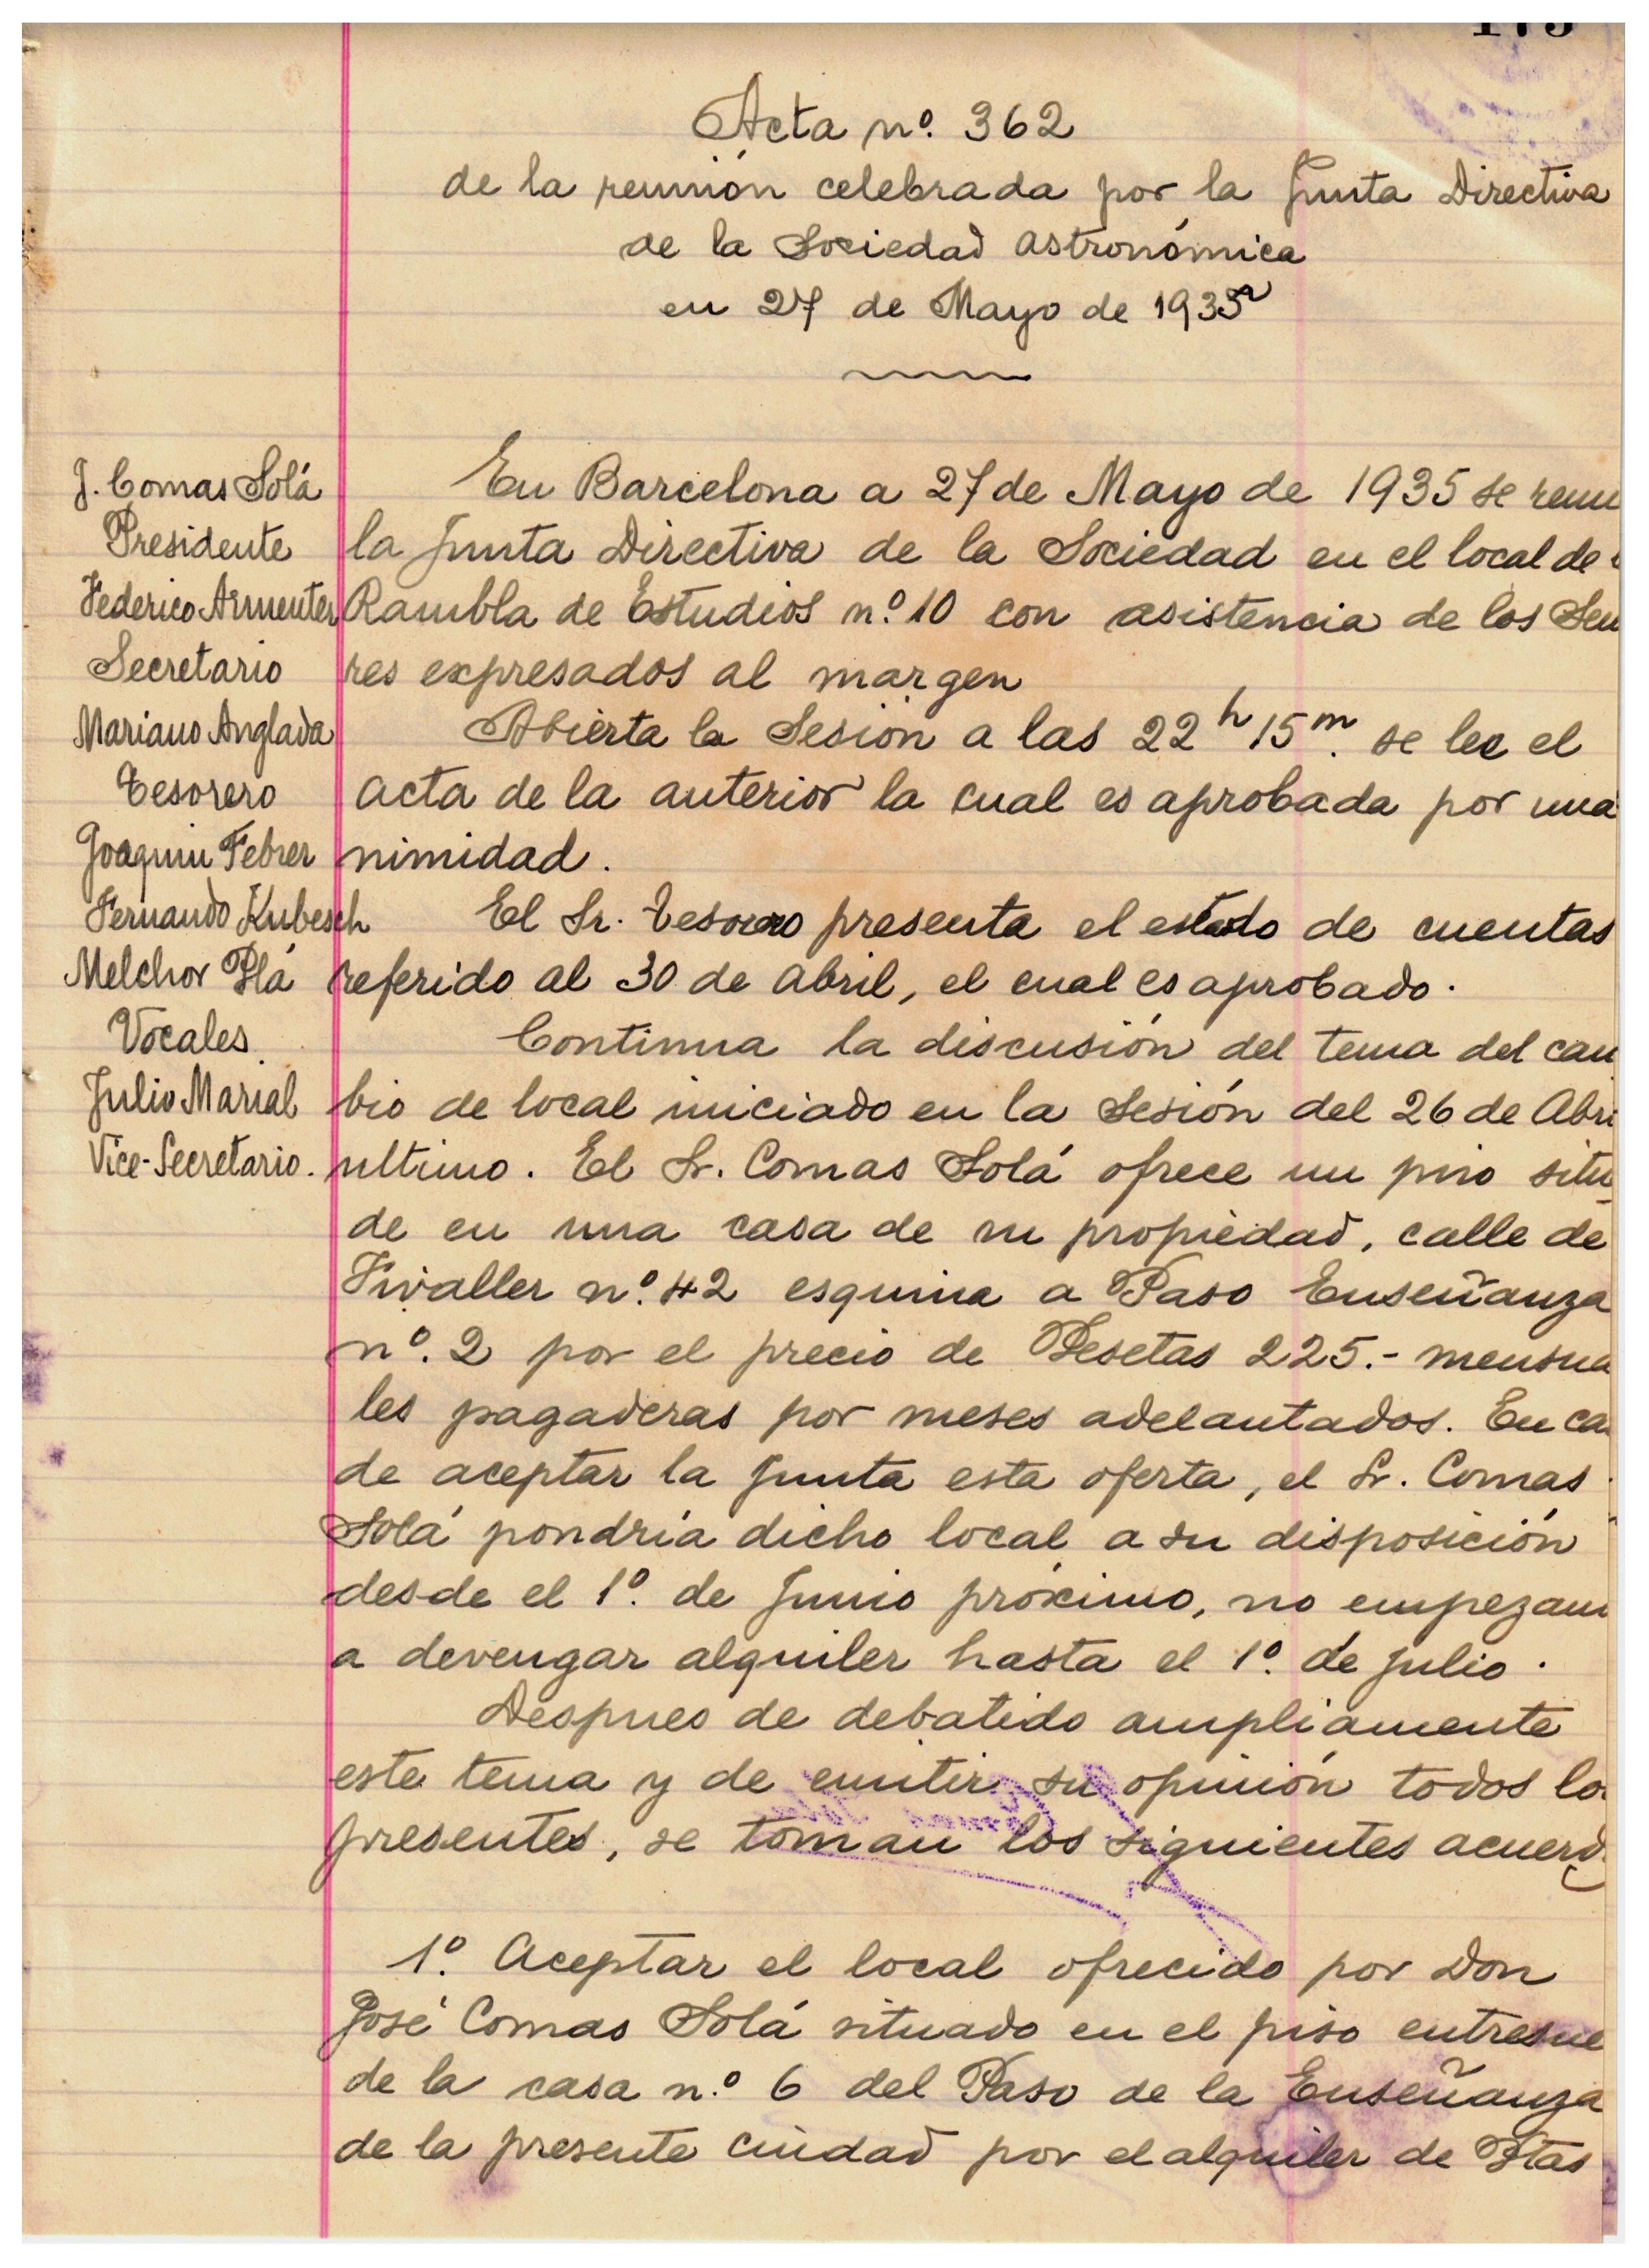 Acta nº. 362
de la reunión celebrada por la Junta Directiva
de la Sociedad Astronómica
en 27 de Mayo de 1935
J. Comas Solá
Presidente
Federico Armenter
Secretario
Mariano Anglada
Tesorero
Joaquin Febrer
Fernando Kubesch
Melchor Plá
Vocales
Julio Marial
Vice-Secretario.
En Barcelona a 27 de Mayo de 1935 se reun
la Junta Directiva de la Sociedad en el local de
Rambla de Estudios nº. 10 con asistencia de los Seu
res expresados al margen
Abierta la Sesión a las 22h 15m. se lee el
acta de la anterior la cual es aprobada por una
nimidad.
El Sr. Tesorero presenta el estado de cuentas
referido al 30 de Abril, el cual es aprobado.
Continua la discusión del tema del cam
bio de local iniciado en la Sesión del 26 de Abri
ultimo. El Sr. Comas Solá ofrece un piso situ
de en una casa de su propiedad, calle de
Fivaller nº. 42 esquina a Paso Enseñanza
nº. 2 por el precio de Pesetas 225.- mensua
les pagaderas por meses adelantados. En ca
de aceptar la Junta esta oferta, el Sr. Comas
Solá pondría dicho local a su disposición
desde el 1º. de Junio próximo, no empezan
a devengar alquiler hasta el 1º. de Julio.
Despues de debatido ampliamente
este tema y de emitir su opinión todos lo
presentes, se toman los siguientes acuerd
1º. Aceptar el local ofrecido por Don
José Comas Solá situado en el piso entresue
de la casa n.º 6 del Paso de la Enseñanza
de la presente ciudad por el alquiler de Ptas